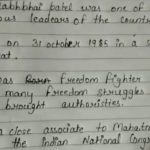 abhbhai patel was one of
ous leadears of the country
on 31 october 1985 in a s
at.
as freedom fighter
many freedom struggles
brought authorities.
close associate to Mahatma
the Indian National Congr